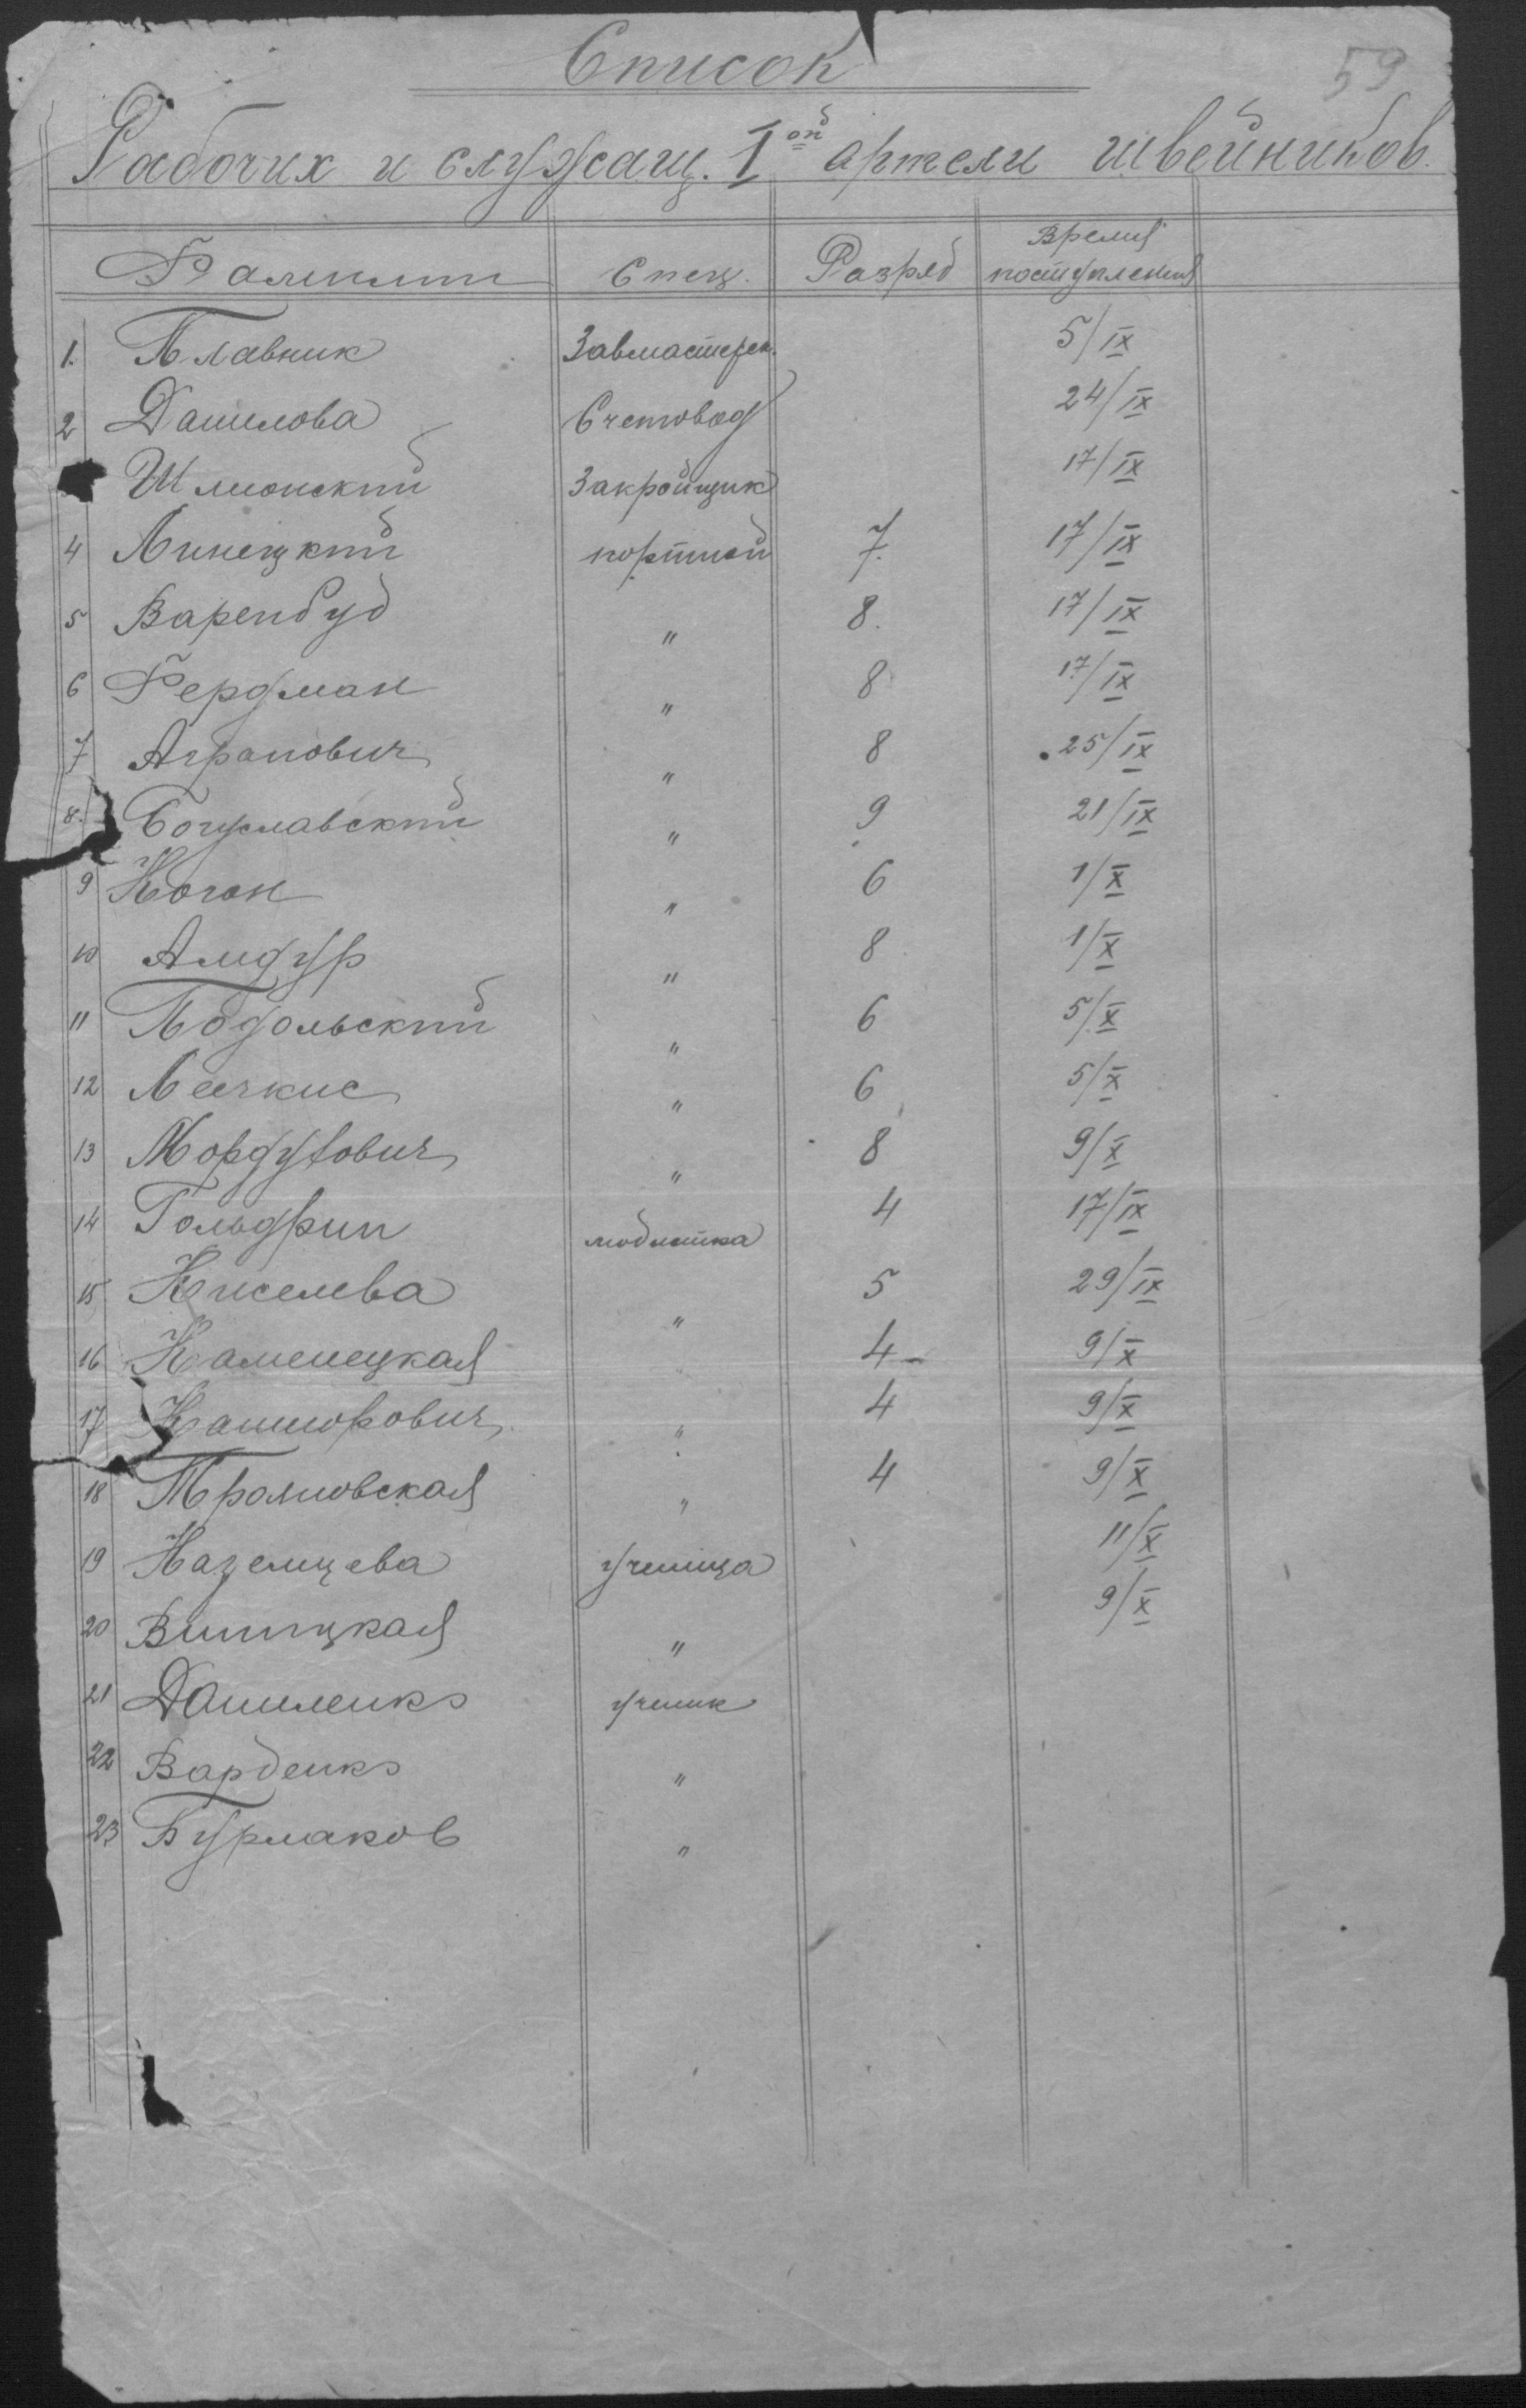 59
Список
Рабочих и служащ. Iой артели швейников.
Фамилии Спец. Разряд Время поступления
1. Плавник Завмастерск. 5/IX
2 Данилова Счетовод 24/IX
Шмионский Закройщик 17/IX
4 Линецкий портной 7. 17/IX
5 Варенбуд " 8. 17/IX
6 Фердман " 8 17/IX
7 Агранович " 8 25/IX
8. Богуславский " 9 21/IX
9 Коган " 6 1/X
10 Амдур " 8 1/X
11 Подольский " 6 5/X
12 Лечкис " 6 5/X
13 Мордухович " 8 9/X
14 Гольдрин модистка 4 17/IX
15 Киселева " 5 29/IX
16 Каменецкая " 4 9/X
17 " 4 9/X
18 Трояновская " 4 9/X
19 Казємцева ученица 11/X
20 Виницкая " 9/X
21 Даниленко ученик
22 Варденко "
23 Бурлаков "